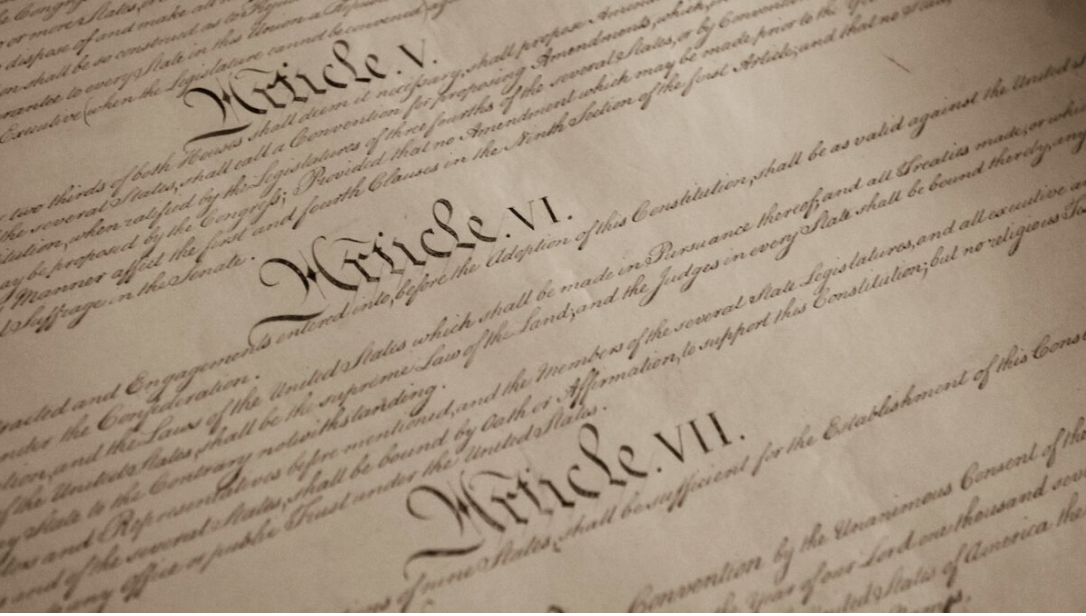 dispose of and make all
shall be so construed as to
arantee to every State in this Union a
Executive (when the Legislature cannot be convened)
Article. V.
two thirds of both Houses shall deem it necessary, shall propose
the several States, shall call a Convention for proposing Amendments, which,
when ratified by the Legislatures of three fourths of the several States, or by Convention
ay be proposed by the Congress; Provided that no Amendment which may be made prior to the
Manner affect the first and fourth Clauses in the Ninth Section of the first Article; and that no State,
Suffrage in the Senate.
Article. VI.
racted and Engagements entered into, before the Adoption of this Constitution, shall be as valid against the United
nder the Confederation.
tion, and the Laws of the United States which shall be made in Pursuance thereof; and all Treaties made, or
of the United States, shall be the supreme Law of the Land; and the Judges in every State shall be bound thereby, any
State to the Contrary notwithstanding.
and Representatives before mentioned, and the Members of the several State Legislatures, and all executive
and of the several States, shall be bound by Oath or Affirmation, to support this Constitution; but no religious
any Office or public Trust under the United States.
Article. VII.
of nine States, shall be sufficient for the Establishment of this
Convention by the Unanimous Consent of the
Year of our Lord one thousand
United States of America